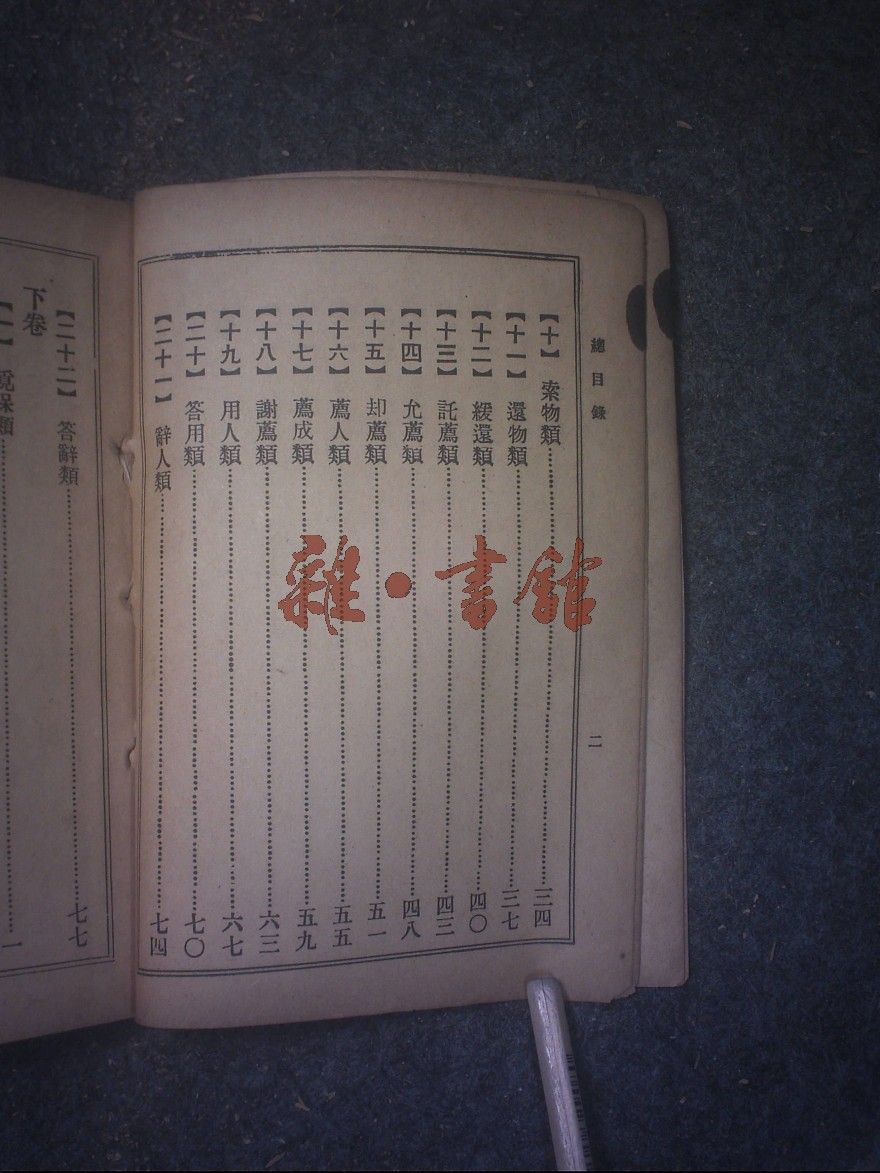 總目錄
二
【十】 索物類 三四
【十一】 還物類 三七
【十二】 緩還類 四〇
【十三】 託薦類 四三
【十四】 允薦類 四八
【十五】 却薦類 五一
【十六】 薦人類 五五
【十七】 薦成類 五九
【十八】 謝薦類 六三
【十九】 用人類 六七
【二十】 答用類 七〇
【二十一】 辭人類 七四
【二十二】 答辭類 七七
下卷
【一】 覓保類 一
雜·書館